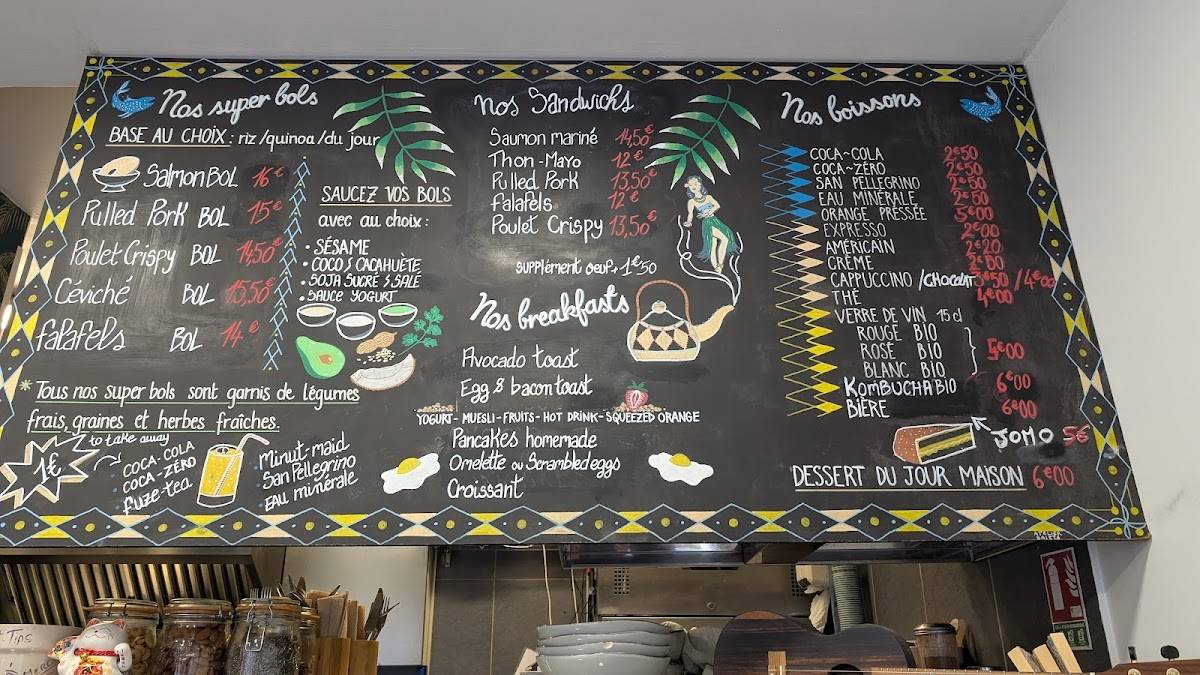 Nos super bols
BASE AU CHOIX : riz /quinoa/du jour
Salmon BOL 16€
Pulled Pork BOL 15€
Poulet Crispy BOL 14,50€
Céviché BOL 15,50€
falafels BOL 14€
SAUCEZ VOS BOLS
avec au choix :
• SÉSAME
• COCO & CACAHUÈTE
• SOJA SUCRÉ & SALÉ
• SAUCE YOGURT
*Tous nos super bols sont garnis de légumes
frais, graines et herbes fraîches.
1€
to take away
COCA-COLA
COCA-ZÉRO
fuze-tea
• Minut-maid
• San Pellegrino
• EAU minérale
Nos Sandwichs
Saumon mariné 14,50€
Thon-Mayo 12€
Pulled Pork 13,50€
falafels 12€
Poulet Crispy 13,50€
supplément oeuf + 1€50
Nos breakfasts
Avocado toast
Egg & bacon toast
YOGURT - MUESLI - FRUITS - HOT DRINK - SQUEEZED ORANGE
Pancakes homemade
Omelette ou Scrambled eggs
Croissant
Nos boissons
COCA~COLA 2€50
COCA~ZÉRO 2€50
SAN PELLEGRINO 2€50
EAU MINÉRALE 2€50
ORANGE PRESSÉE 5€00
EXPRESSO 2€00
AMÉRICAIN 2€20
CRÈME 2€50
CAPPUCCINO /CHOCOLAT 3€50 / 4€00
THÉ 4€00
VERRE DE VIN 15 cl
ROUGE BIO
ROSÉ BIO 5€00
BLANC BIO
KOMBUCHA BIO 6€00
BIÈRE 6€00
JOMO 5€
DESSERT DU JOUR MAISON 6€00
Tips